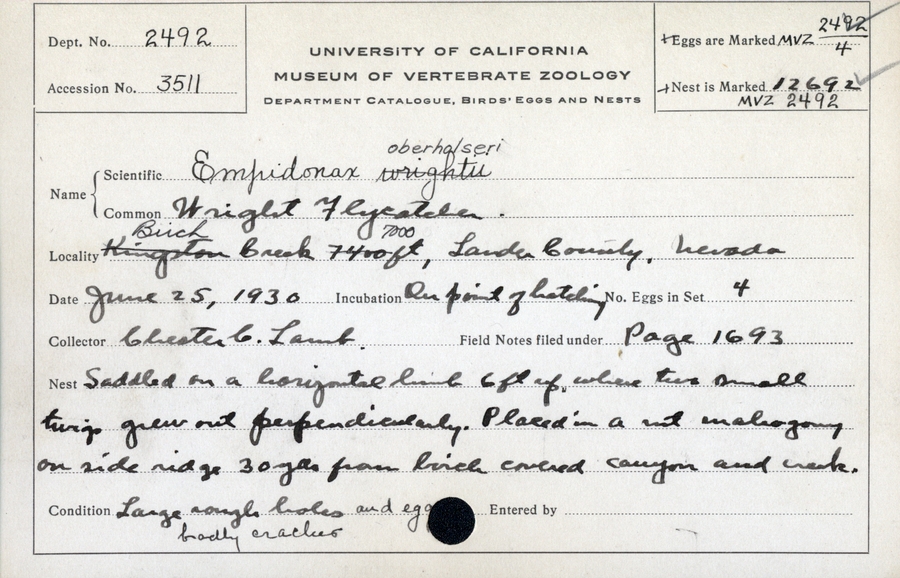 Dept. No. 2492
Accession No. 3511
UNIVERSITY OF CALIFORNIA
MUSEUM OF VERTEBRATE ZOOLOGY
DEPARTMENT CATALOGUE, BIRDS' EGGS AND NESTS
Eggs are Marked MVZ 2492/4
Nest is Marked 12692
MVZ 2492
oberholseri
Name Scientific Empidonax wrightii
Common Wright Flycatcher.
Birch 7000
Locality Kingston Creek 7400ft, Lander County, Nevada
Date June 25, 1930 Incubation On point of hatching No. Eggs in Set 4
Collector Chester C. Lamb. Field Notes filed under Page 1693
Nest Saddled on a horizontal limb 6 ft up, where two small
twigs grew out perpendicularly. Placed in a mt mahogony
on side ridge 30 yds from birch covered canyon and creek.
Condition Large rough holes and egg Entered by
badly cracked